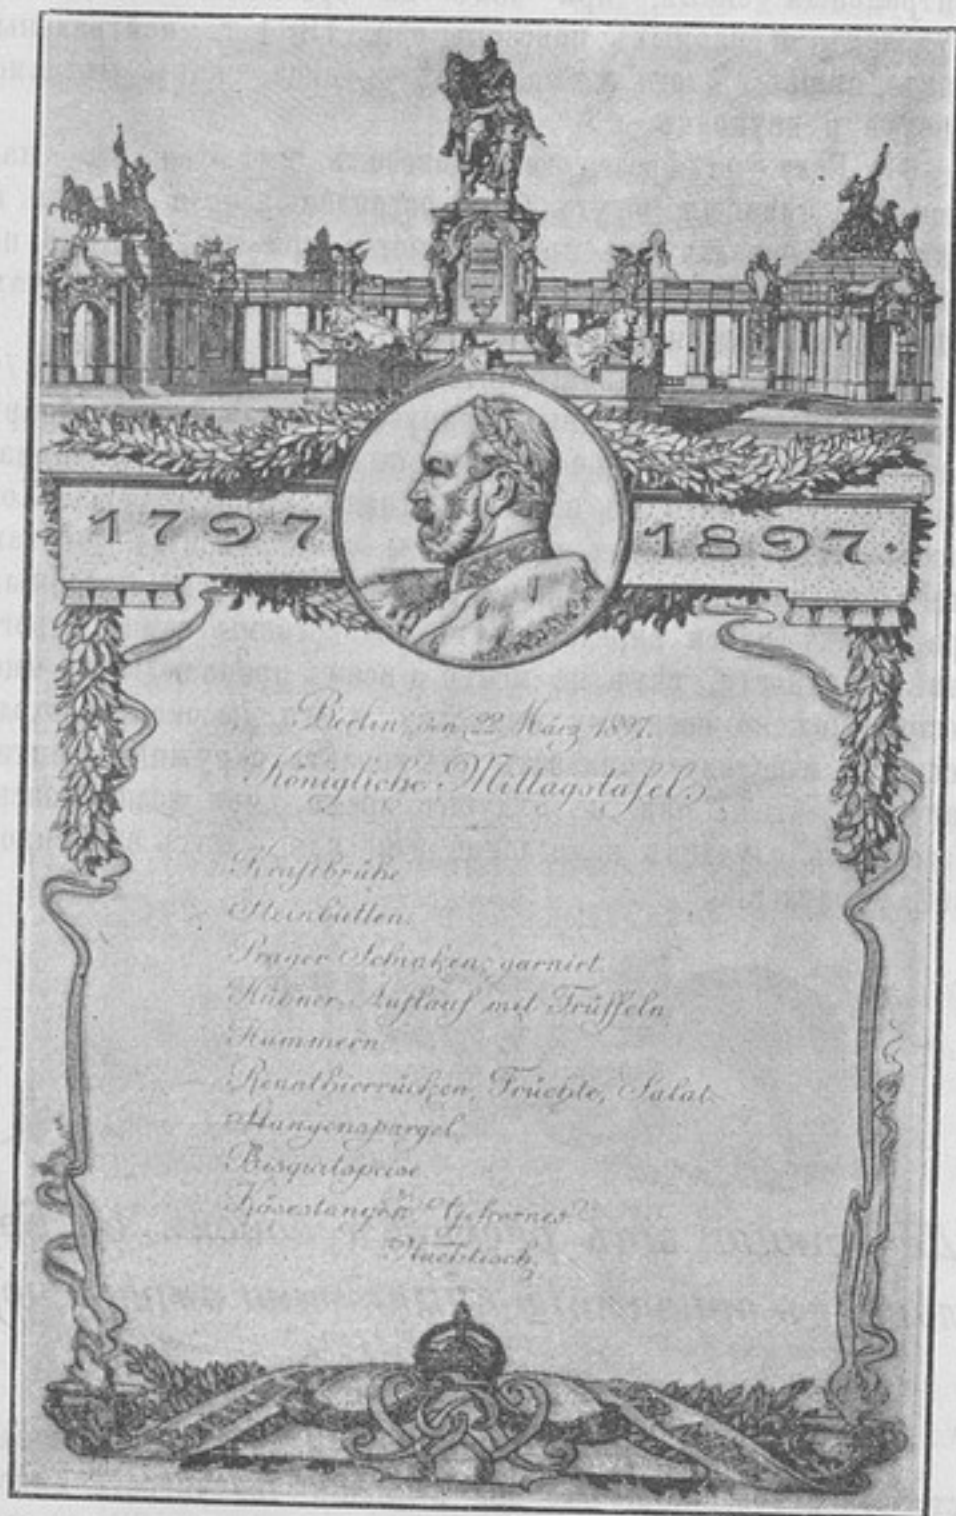 1797 1897.
Berlin, den 22. März 1897.
Königliche Mittagstafel.
Kraftbrühe.
Steinbutten.
Prager Schinken, garnirt.
Hühner-Auflauf mit Trüffeln.
Hummern.
Rennthierrücken, Früchte, Salat.
Stangenspargel.
Bisquitspeise.
Käsestangen. Gefrornes.
Nachtisch.